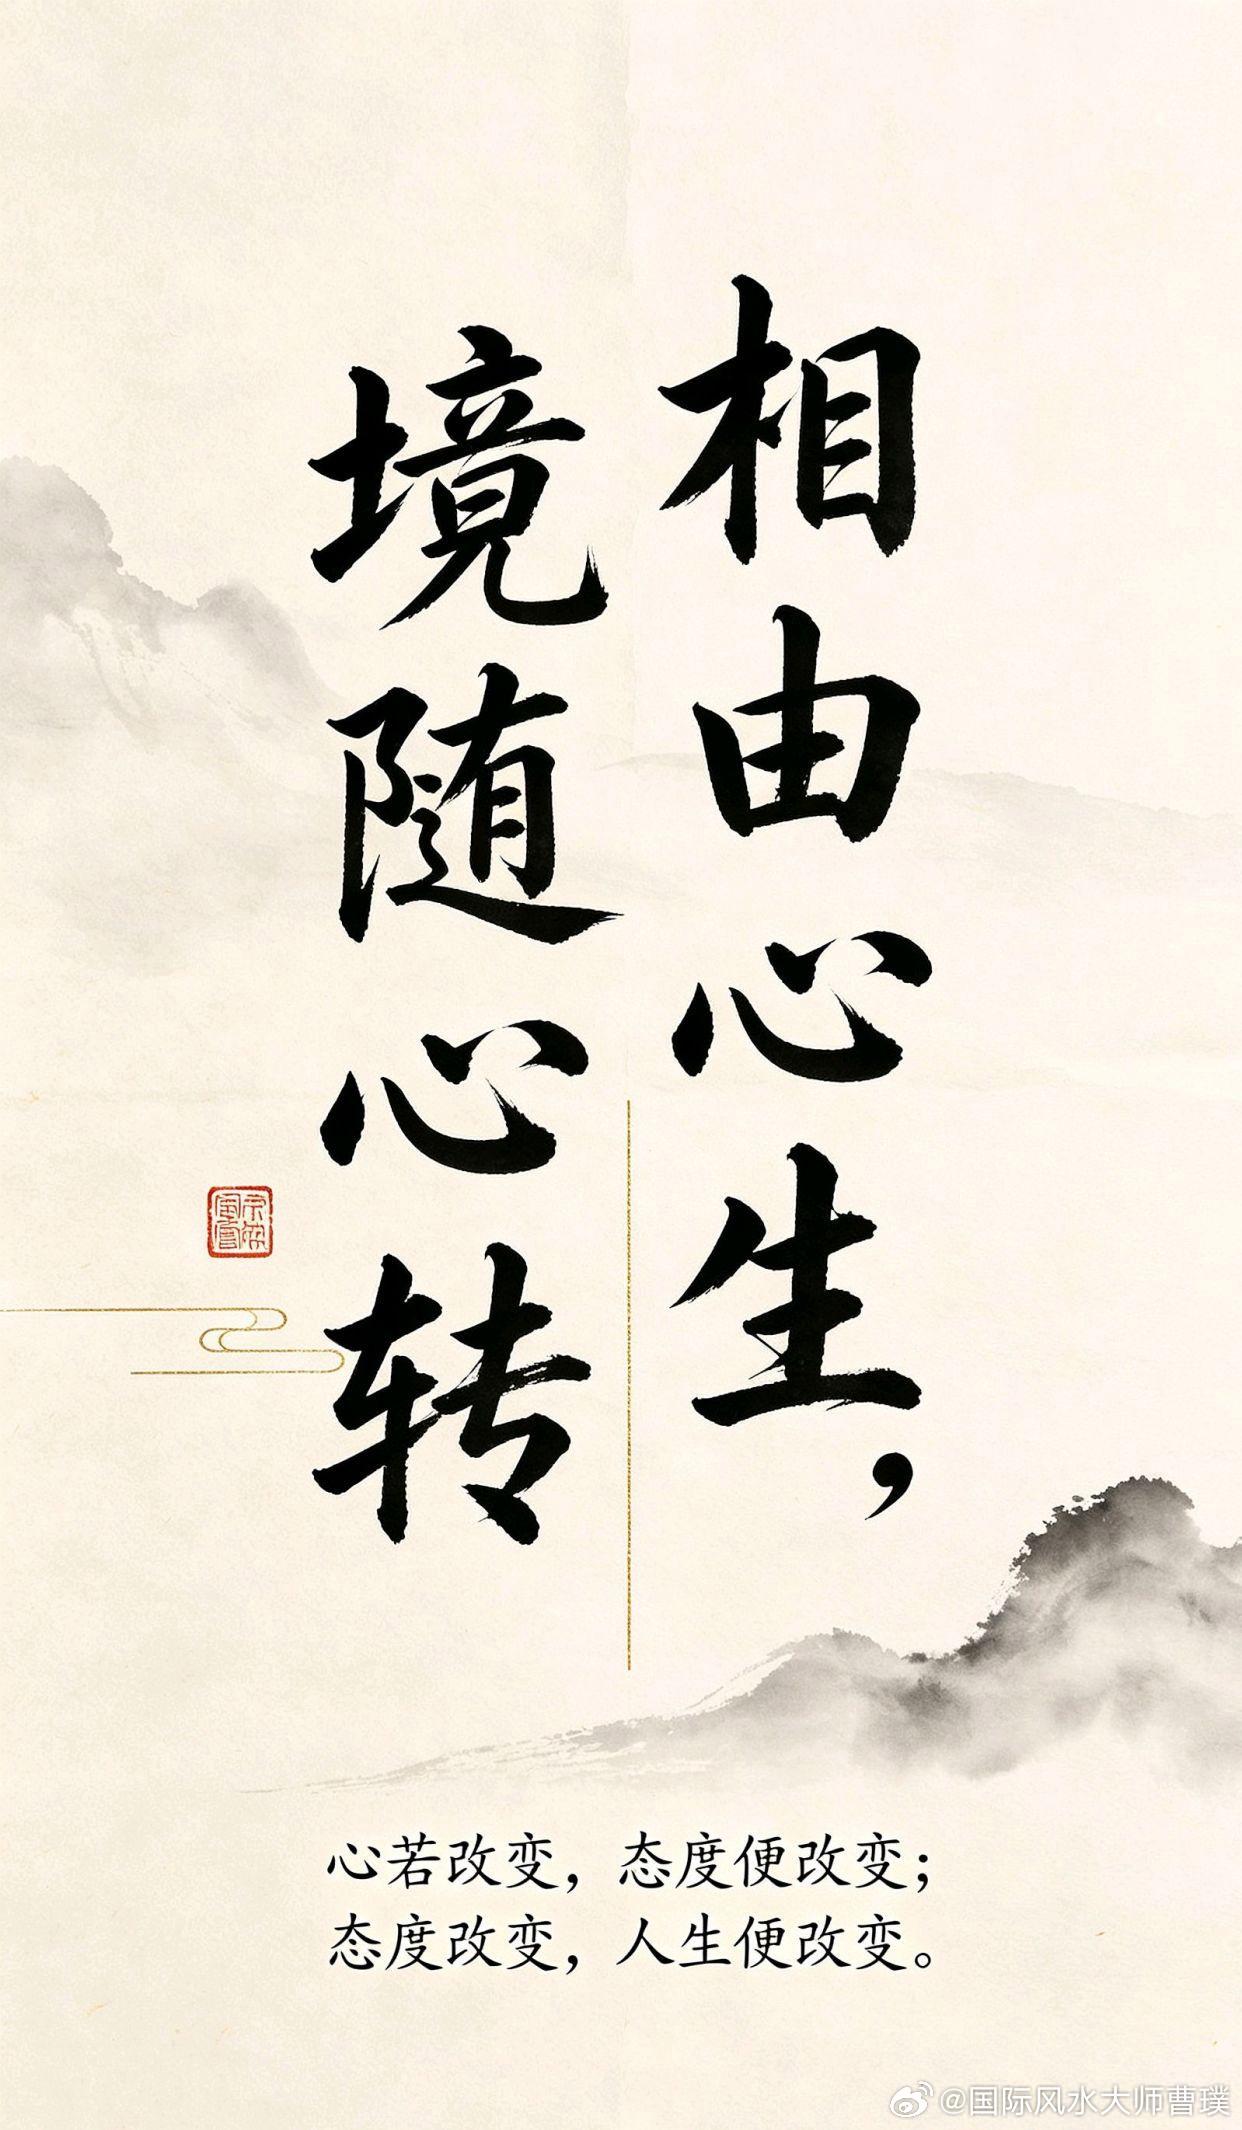 相由心生，
境随心转
心若改变，态度便改变；
态度改变，人生便改变。
@国际风水大师曹璞